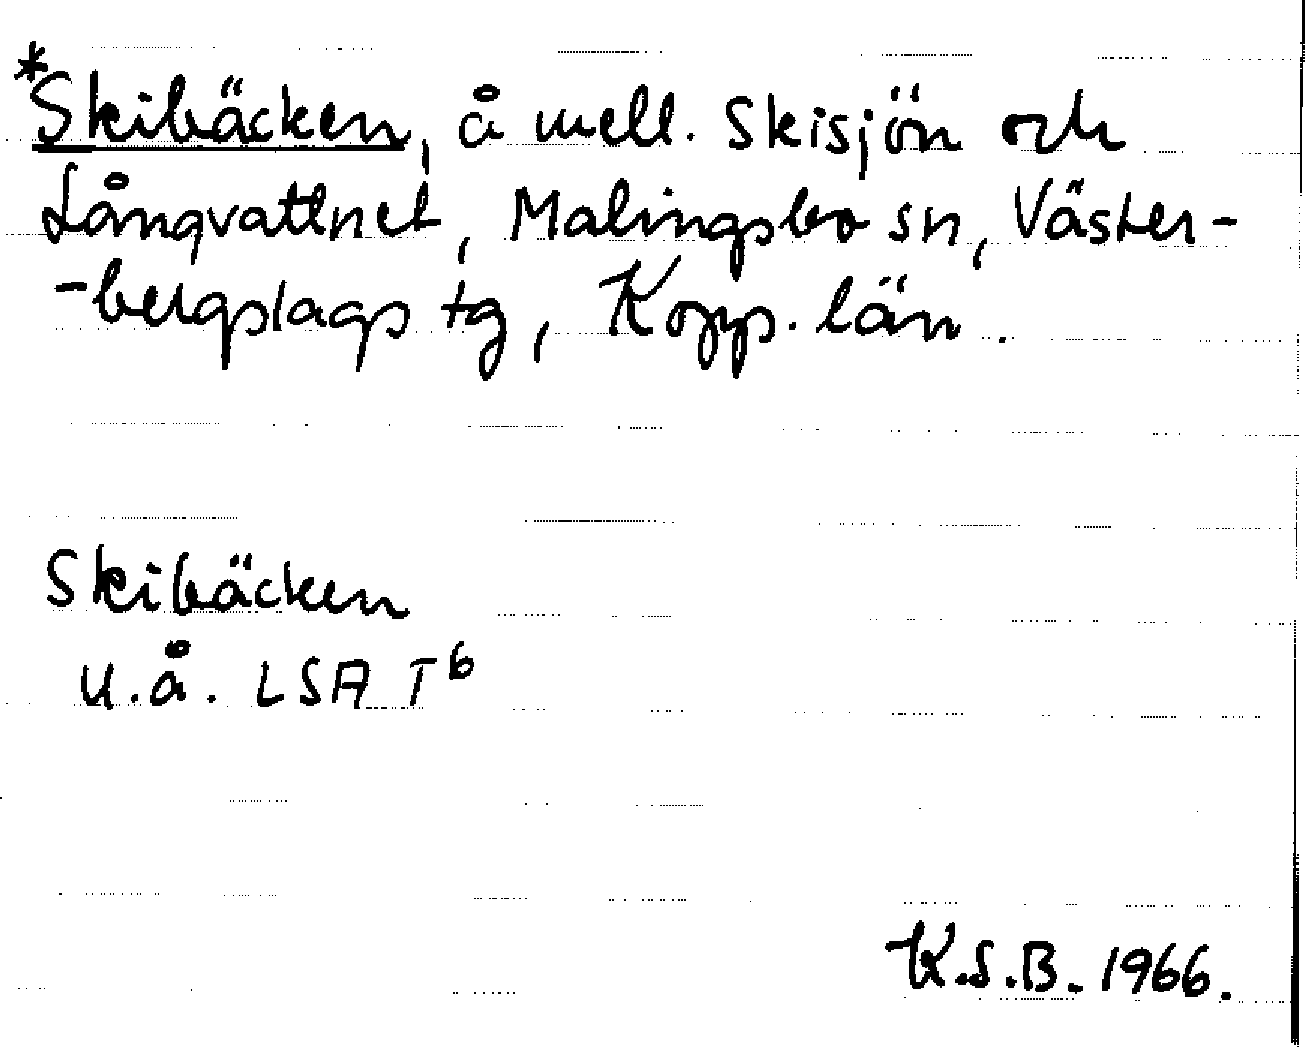 *Skibäcken, å mell. Skisjön och
Långvattnet, Malingsbo sn, Väster-
-bergslags tg, Kopp. län.
Skibäcken
u.å. LSA T6
K.S.B. 1966.